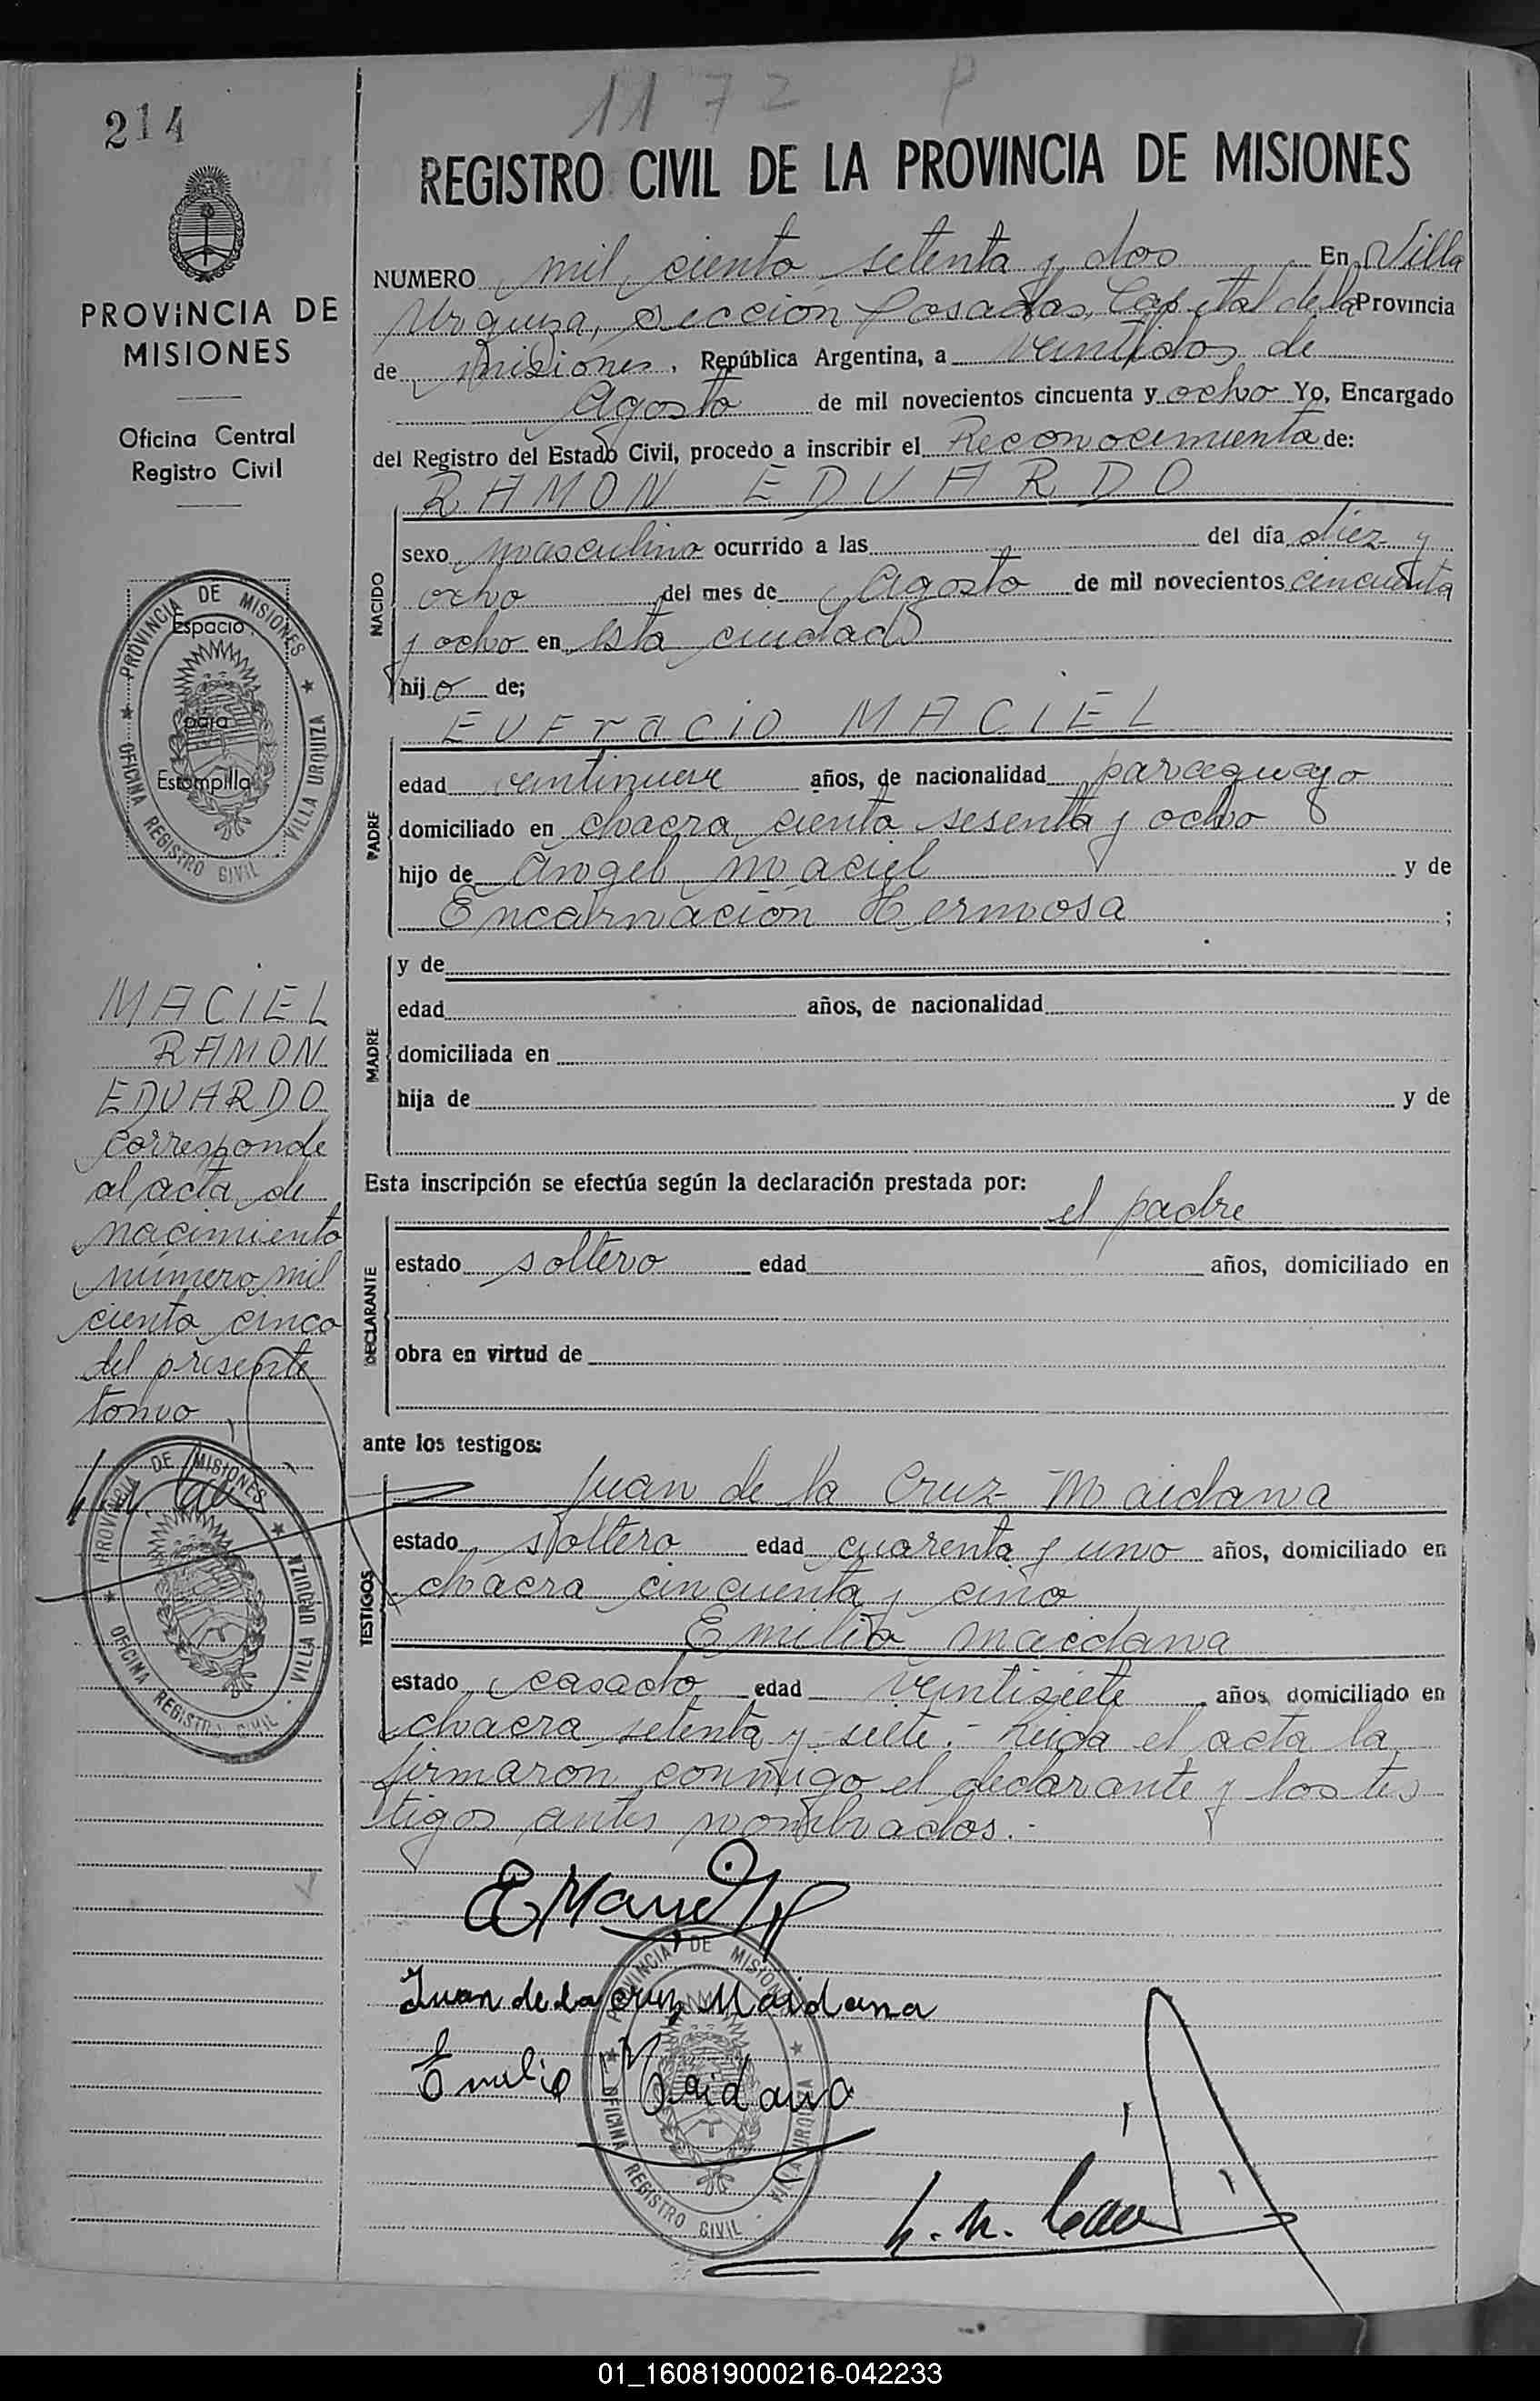 1172 P
214
REGISTRO CIVIL DE LA PROVINCIA DE MISIONES
PROVINCIA DE
MISIONES
Oficina Central
Registro Civil
PROVINCIA DE MISIONES
Espacio
para
Estampilla
OFICINA REGISTRO CIVIL VILLA URQUIZA
MACIEL
RAMON
EDUARDO
corresponde
al acta de
nacimiento
número mil
ciento cinco
del presente
tomo
PROVINCIA DE MISIONES
OFICINA REGISTRO CIVIL VILLA URQUIZA
NUMERO mil ciento setenta y dos En Villa
Urquiza, sección Posadas, Capital de la Provincia
de Misiones, República Argentina, a veintidos de
Agosto de mil novecientos cincuenta y ocho Yo, Encargado
del Registro del Estado Civil, procedo a inscribir el Reconocimiento de:
RAMON EDUARDO
NACIDO
sexo masculino ocurrido a las del día diez y
ocho del mes de Agosto de mil novecientos cincuenta
y ocho en esta ciudad
hijo de;
EUFracio MACIEL
PADRE
edad veintinueve años, de nacionalidad paraguayo
domiciliado en chacra ciento sesenta y ocho
hijo de Angel Maciel y de
Encarnación Hermosa ;
MADRE
y de
edad años, de nacionalidad
domiciliada en
hija de y de
Esta inscripción se efectúa según la declaración prestada por:
el padre
DECLARANTE
estado soltero edad años, domiciliado en
obra en virtud de
ante los testigos:
Juan de la Cruz Maidana
TESTIGOS
estado soltero edad cuarenta y uno años, domiciliado en
chacra cincuenta y cinco
Emilio Maidana
estado casado edad veintisiete años, domiciliado en
chacra setenta y siete.- Leida el acta la
firmaron conmigo el declarante y los tes
tigos antes nombrados.-
Juan de la Cruz Maidana
Emilio Maidana
PROVINCIA DE MISIONES
OFICINA REGISTRO CIVIL VILLA URQUIZA
01_160819000216-042233